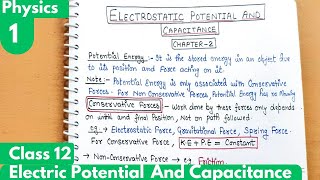 Physics
1
ELECTROSTATIC POTENTIAL AND
CAPACITANCE
CHAPTER-2
Potential Energy :- It is the stored energy in an object due
to its position and Force acting on it.
Note:- Potential Energy is only associated with Conservative
Forces. For Non Conservative Forces, Potential Energy has no
Conservative Forces - Work done by these forces only depends
on initial and final Position, Not on path followed.
eg. Electrostatic Force, Gravitational Force, Spring Force
For Conservative Force, K.E + P.E = Constant
→ Non-Conservative Force → eg. Friction
Class 12
Electric Potential And Capacitance